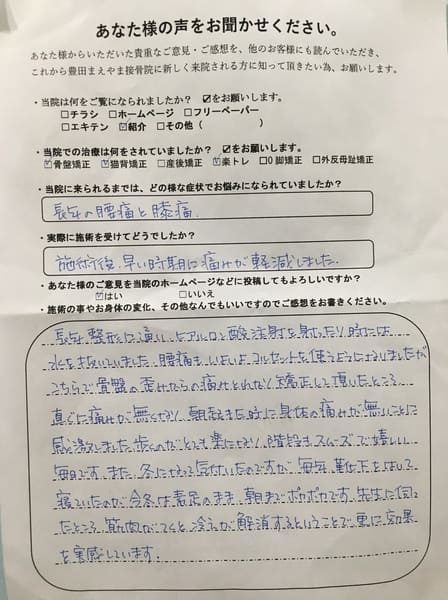 あなた様の声をお聞かせください。
あなた様からいただいた貴重なご意見・ご感想を、他のお客様にも読んでいただき、
これから豊田まえやま接骨院に新しく来院される方に知って頂きたい為、お願いします。
・当院は何をご覧になられましたか？ ☑をお願いします。
□チラシ □ホームページ □フリーペーパー
□エキテン ☑紹介 □その他（ ）
・当院での治療は何をされていましたか？ ☑をお願いします。
☑骨盤矯正 ☑猫背矯正 □産後矯正 ☑楽トレ □O脚矯正 □外反母趾矯正
・当院に来られるまでは、どの様な症状でお悩みになられていましたか？
長年の腰痛と膝痛
・実際に施術を受けてどうでしたか？
施術後、早い時期に痛みが軽減しました。
・あなた様のご意見を当院のホームページなどに投稿してもよろしいですか？
☑はい □いいえ
・施術の事やお身体の変化、その他なんでもいいですのでご感想をお書きください。
長年、整形に通い、ヒアルロン酸注射を射ったり時には
水を抜いていました。腰痛もいよいよコルセットを使うようになりましたが
こちらで骨盤の歪みからの痛みとわかり矯正して頂いたところ
直ぐに痛みが無くなり、朝起きた時に身体の痛みが無いことに
感激しました。歩くのがとても楽になり、階段もスムーズで嬉しい
毎日です。また、冬になって気付いたのですが、毎年、靴下をはいて
寝ていたのが今冬は素足のまま、朝までポカポカです。先生に伺っ
たところ、筋肉がつくと冷えが解消するということで更に効果
を実感しています。